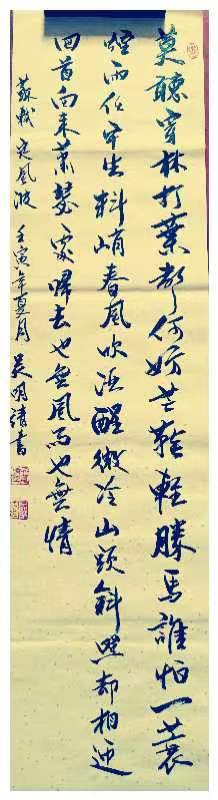 莫聽穿林打葉聲何妨芒鞋輕勝馬誰怕一蓑
煙雨任平生料峭春風吹酒醒微冷山頭斜照却相迎
回首向來蕭瑟處歸去也無風雨也無情
蘇軾定風波 壬寅年夏月 吴明清書